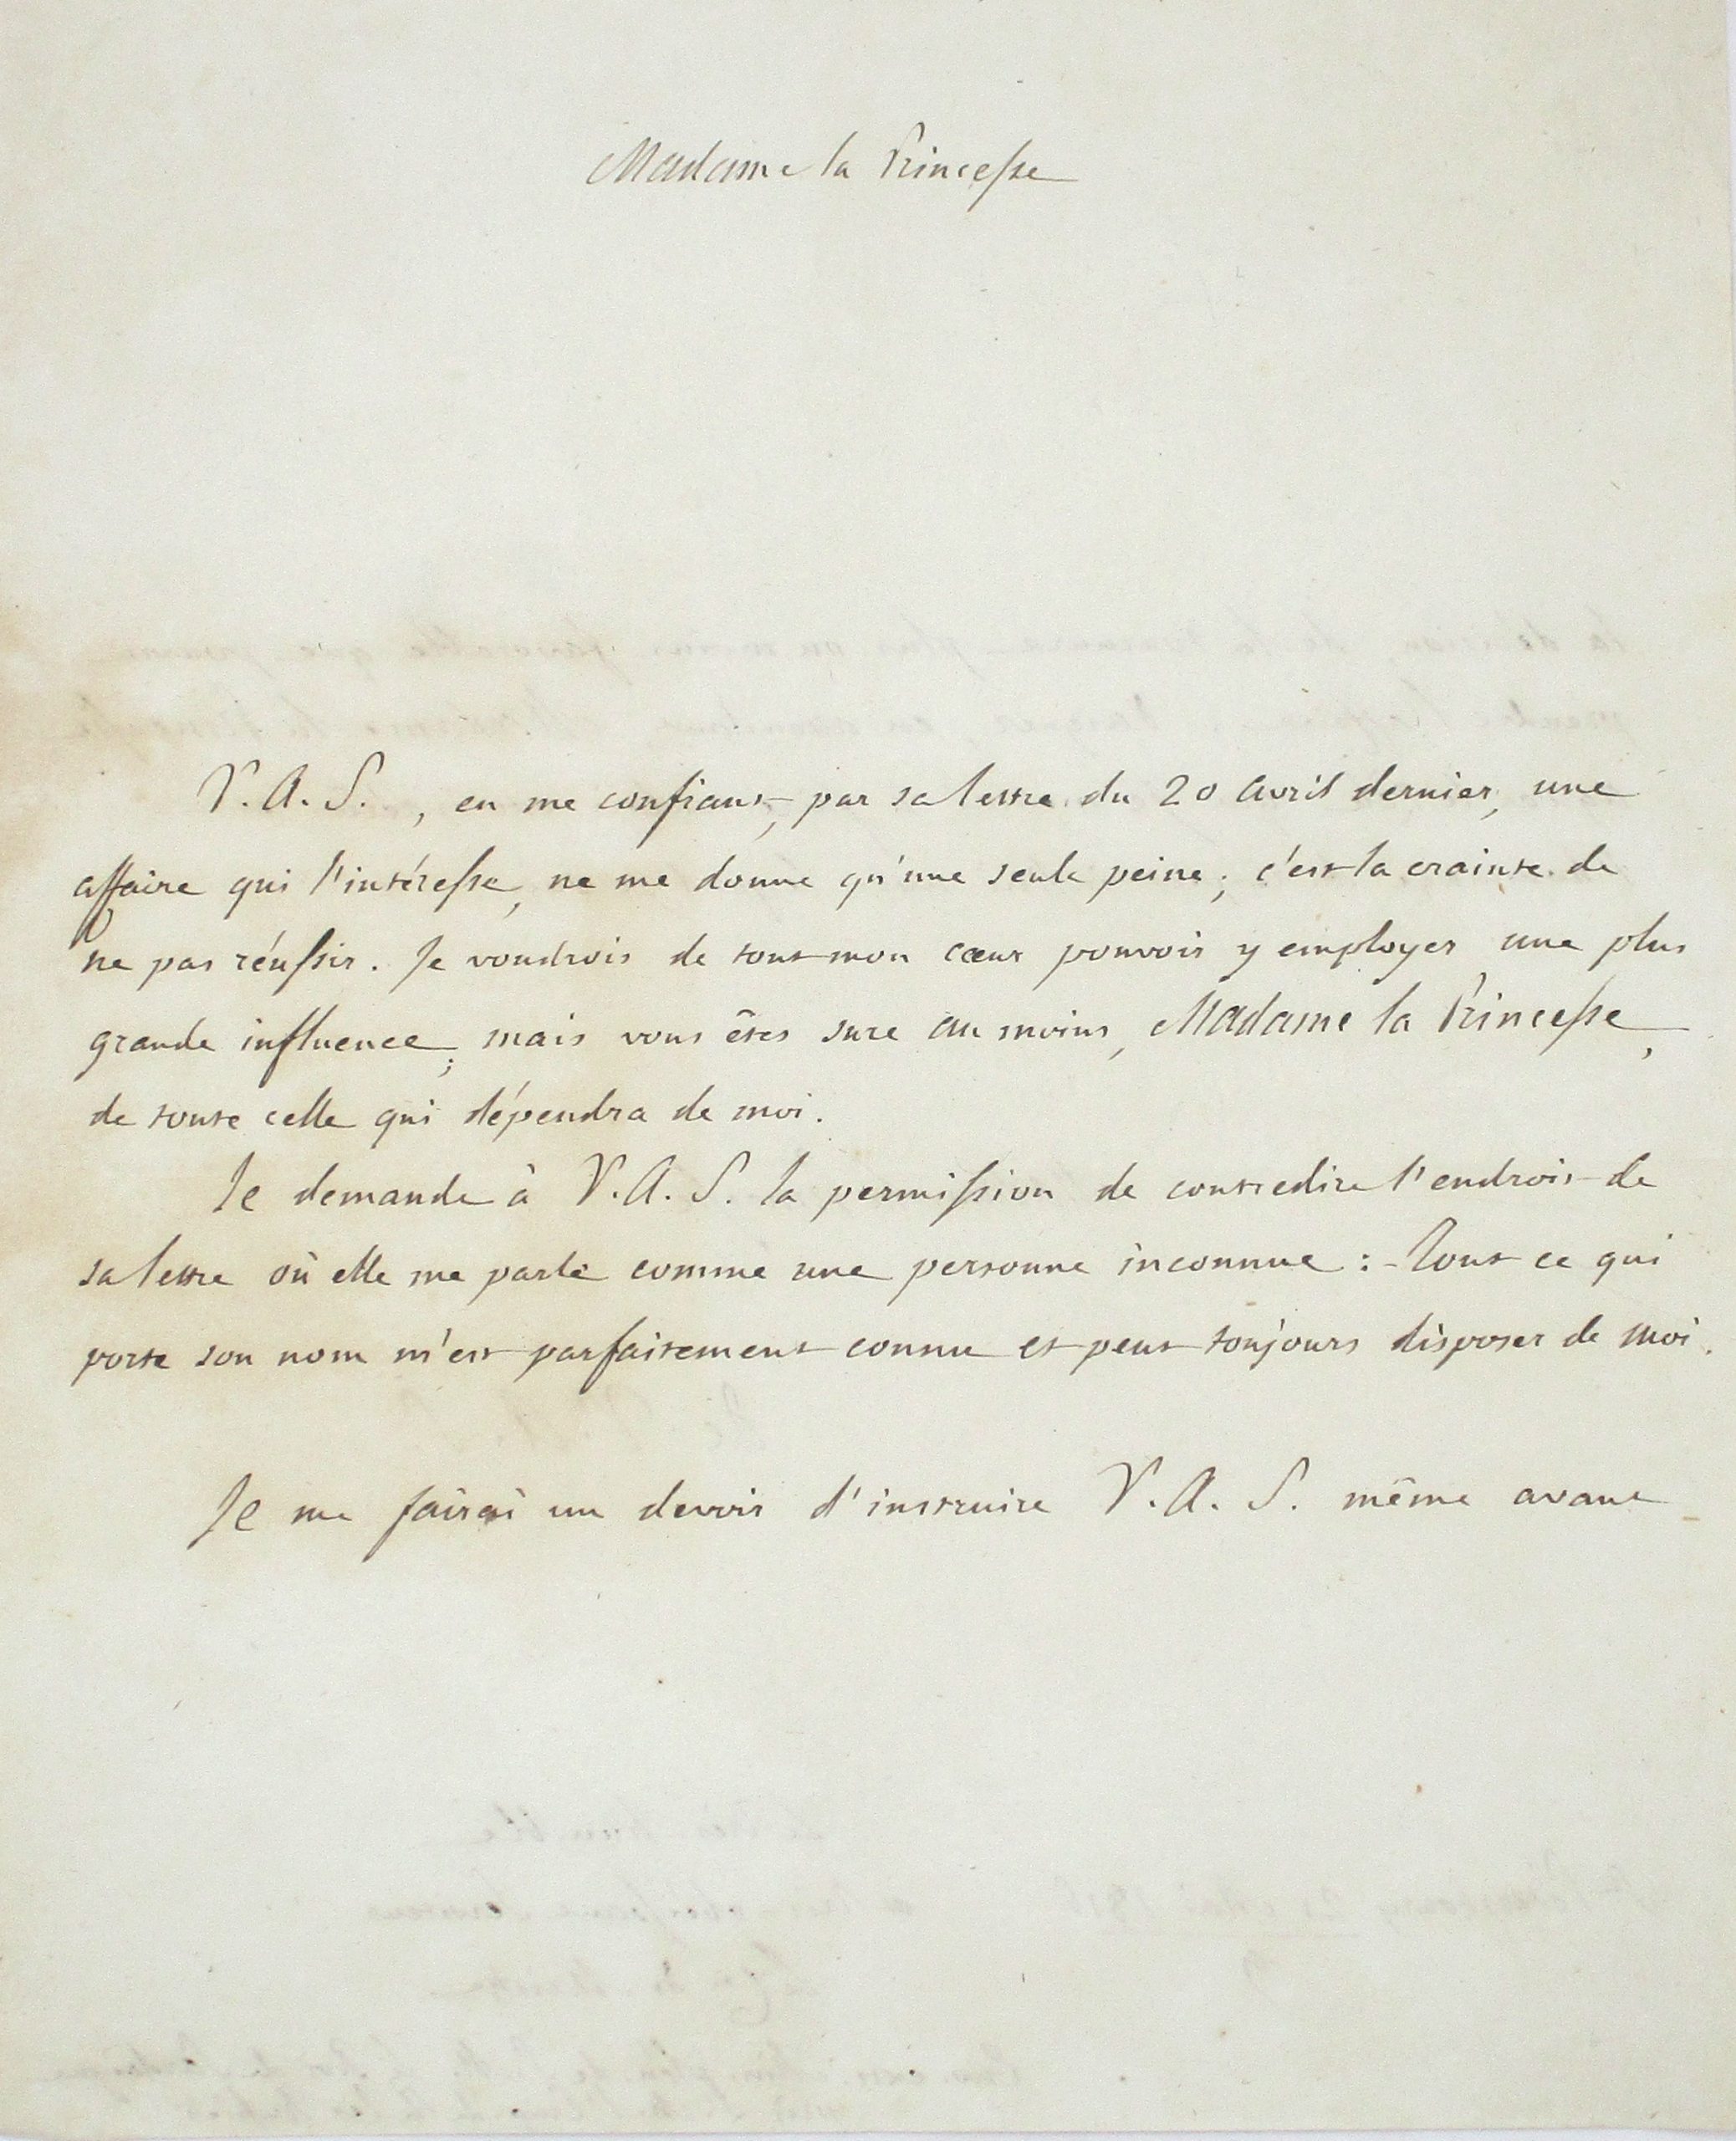 Madame la Princesse
V. A. S. , en me confiant, par sa lettre du 20 avril dernier, une
affaire qui l'intéresse, ne me donne qu'une seule peine; c'est la crainte de
ne pas réussir. Je voudrois de tout mon cœur pouvoir y employer une plus
grande influence; mais vous êtes sure au moins, Madame la Princesse,
de toute celle qui dépendra de moi.
Je demande à V. A. S. la permission de contredire l'endroit de
sa lettre où elle me parle comme une personne inconnue : Tout ce qui
porte son nom m'est parfaitement connu et peut toujours disposer de moi.
Je me fairai un devoir d'instruire V. A. S. même avant